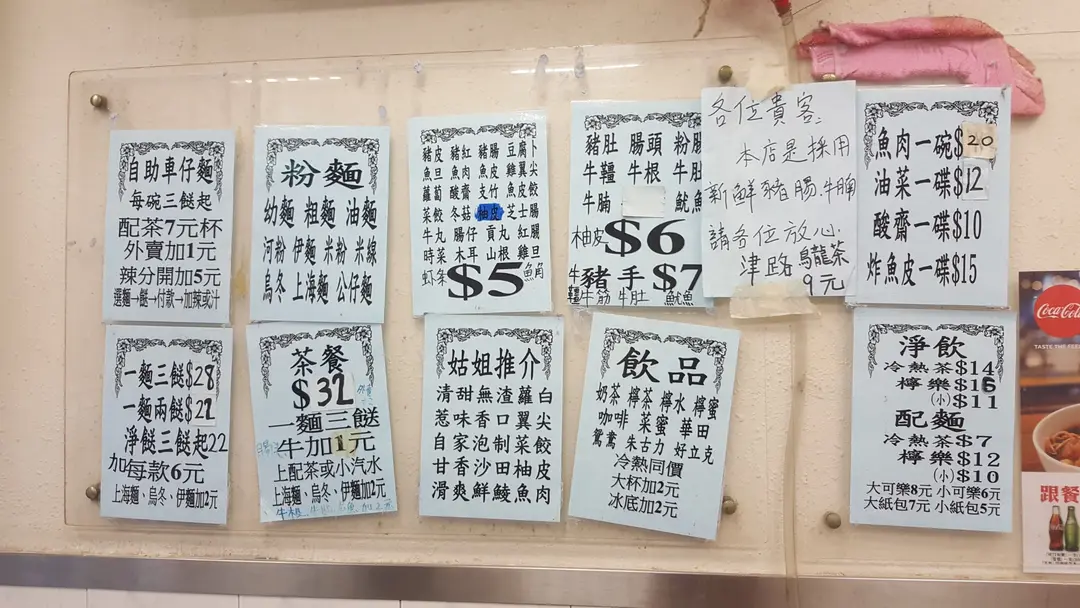 自助車仔麵
每碗三餸起
配茶7元杯
外賣加1元
辣分開加5元
選麵→餸→付款→加辣或汁
粉麵
幼麵 粗麵 油麵
河粉 伊麵 米粉 米線
烏冬 上海麵 公仔麵
豬皮 豬紅 豬腸 豆腐卜
魚旦 魚肉 魚皮 雞翼尖
蘿蔔 酸齋 支竹 魚皮餃
菜餃 冬菇 柚皮 芝士腸
牛丸 腸仔 貢丸 紅腸
時菜 木耳 山根 雞旦
$5
魚角
豬肚 腸頭 粉腸
牛𩜙 牛根 牛肚
牛腩 魷魚
柚皮 $6
豬手 $7
牛筋 牛肚 魷魚
各位貴客
本店是採用
新鮮豬腸,牛腩
請各位放心
津路烏龍茶
9元
魚肉一碗$20
油菜一碟$12
酸齋一碟$10
炸魚皮一碟$15
一麵三餸$28
一麵兩餸$22
淨餸三餸起22
加每款6元
上海麵、烏冬、伊麵加2元
茶餐
$32
一麵三餸
牛加1元
上配茶或小汽水
上海麵、烏冬、伊麵加2元
姑姐推介
清甜無渣蘿白
惹味香口翼尖
自家泡制菜餃
甘香沙田柚皮
滑爽鮮鯪魚肉
飲品
奶茶 檸茶 檸水 檸蜜
咖啡 菜蜜 華田
鴛鴦 朱古力 好立克
冷熱同價
大杯加2元
冰底加2元
淨飲
冷熱茶$14
檸樂$16
(小)$11
配麵
冷熱茶$7
檸樂$12
(小)$10
大可樂8元 小可樂6元
大紙包7元 小紙包5元
Coca-Cola
TASTE THE FEEL
跟餐